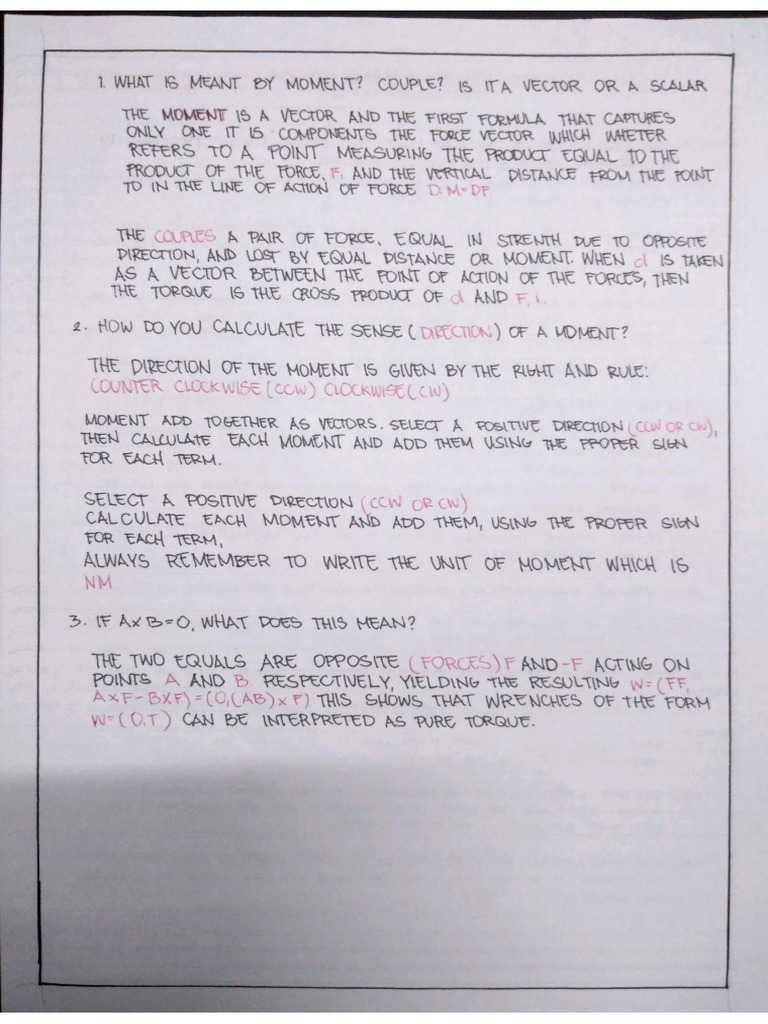 1. WHAT IS MEANT BY MOMENT? COUPLE? IS IT A VECTOR OR A SCALAR
THE MOMENT IS A VECTOR AND THE FIRST FORMULA THAT CAPTURES
ONLY ONE IT IS COMPONENTS THE FORCE VECTOR WHICH WHETER
REFERS TO A POINT MEASURING THE PRODUCT EQUAL TO THE
PRODUCT OF THE FORCE, F, AND THE VERTICAL DISTANCE FROM THE POINT
TO IN THE LINE OF ACTION OF FORCE D: M=DF.
THE COUPLES A PAIR OF FORCE, EQUAL IN STRENTH DUE TO OPPOSITE
DIRECTION, AND LOST BY EQUAL DISTANCE OR MOMENT. WHEN d IS TAKEN
AS A VECTOR BETWEEN THE POINT OF ACTION OF THE FORCES, THEN
THE TORQUE IS THE CROSS PRODUCT OF d AND F, i.
2. HOW DO YOU CALCULATE THE SENSE (DIRECTION) OF A MOMENT?
THE DIRECTION OF THE MOMENT IS GIVEN BY THE RIGHT AND RULE:
COUNTER CLOCKWISE (CCW) CLOCKWISE (CW)
MOMENT ADD TOGETHER AS VECTORS. SELECT A POSITIVE DIRECTION (CCW OR CW),
THEN CALCULATE EACH MOMENT AND ADD THEM USING THE PROPER SIGN
FOR EACH TERM.
SELECT A POSITIVE DIRECTION (CCW OR CW)
CALCULATE EACH MOMENT AND ADD THEM, USING THE PROPER SIGN
FOR EACH TERM,
ALWAYS REMEMBER TO WRITE THE UNIT OF MOMENT WHICH IS
NM
3. IF A×B=0, WHAT DOES THIS MEAN?
THE TWO EQUALS ARE OPPOSITE (FORCES) F AND -F ACTING ON
POINTS A AND B. RESPECTIVELY, YIELDING THE RESULTING W=(FF,
A×F-B×F)=(0,(AB)×F). THIS SHOWS THAT WRENCHES OF THE FORM
W=(0,T) CAN BE INTERPRETED AS PURE TORQUE.